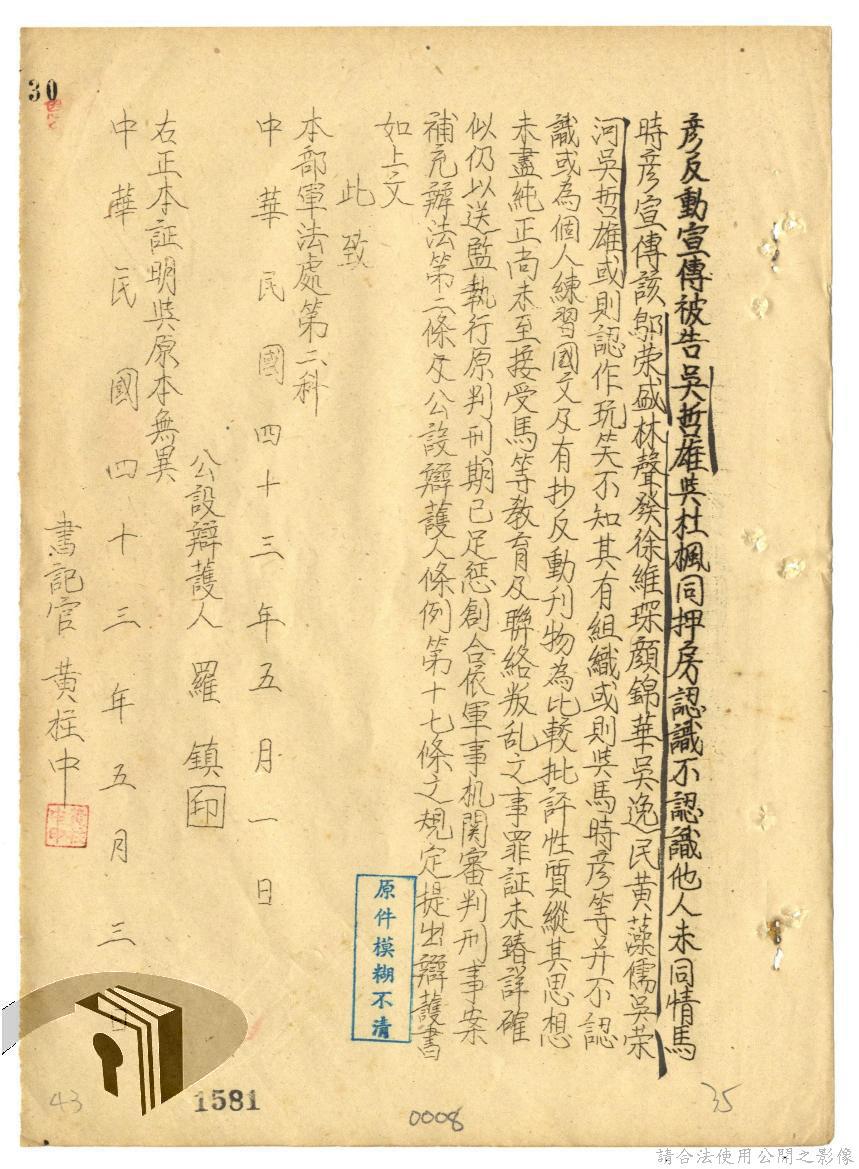 彦反動宣傳被告吳哲雄與杜楓同押房認識不認識他人未同情馬
時彦宣傳該鄔荣盛林聲發徐維琛顏錦華吳逸民黄藻儒吳荣
河吳哲雄或則認作玩笑不知其有組織或則與馬時彦等并不認
識或為個人練習國文及有抄反動刊物為比較批評性質縱其思想
未盡純正尚未至接受馬等教育及聯絡叛乱之事罪証未臻詳確
似仍以送監執行原判刑期已足惩創合依軍事机関審判刑事案
補充辦法第二條及公設辯護人條例第十七條之規定提出辯護書
如上文
此致
本部軍法處第二科
中華民國四十三年五月一日
公設辯護人 羅鎮 印
右正本証明與原本無異
中華民國四十三年五月三日
書記官 黄柱中
原件模糊不清
30
43
1581
0008
35
請合法使用公開之影像